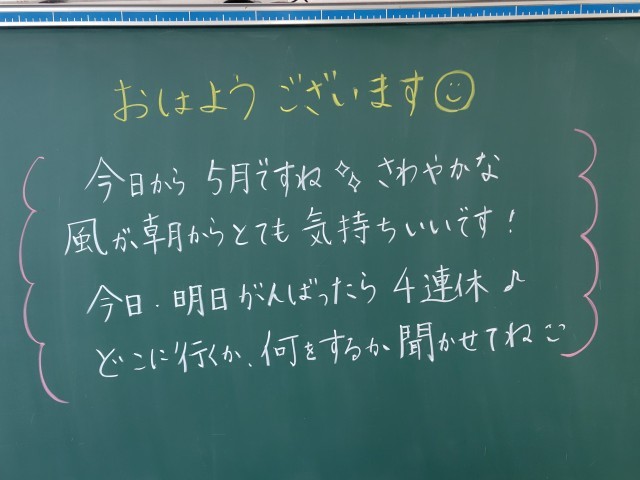 おはようございます☺
今日から 5月ですね✧✧ さわやかな
風が、朝からとても 気持ちいいです！
今日・明日がんばったら 4連休♪
どこに行くか、何をするか聞かせてね